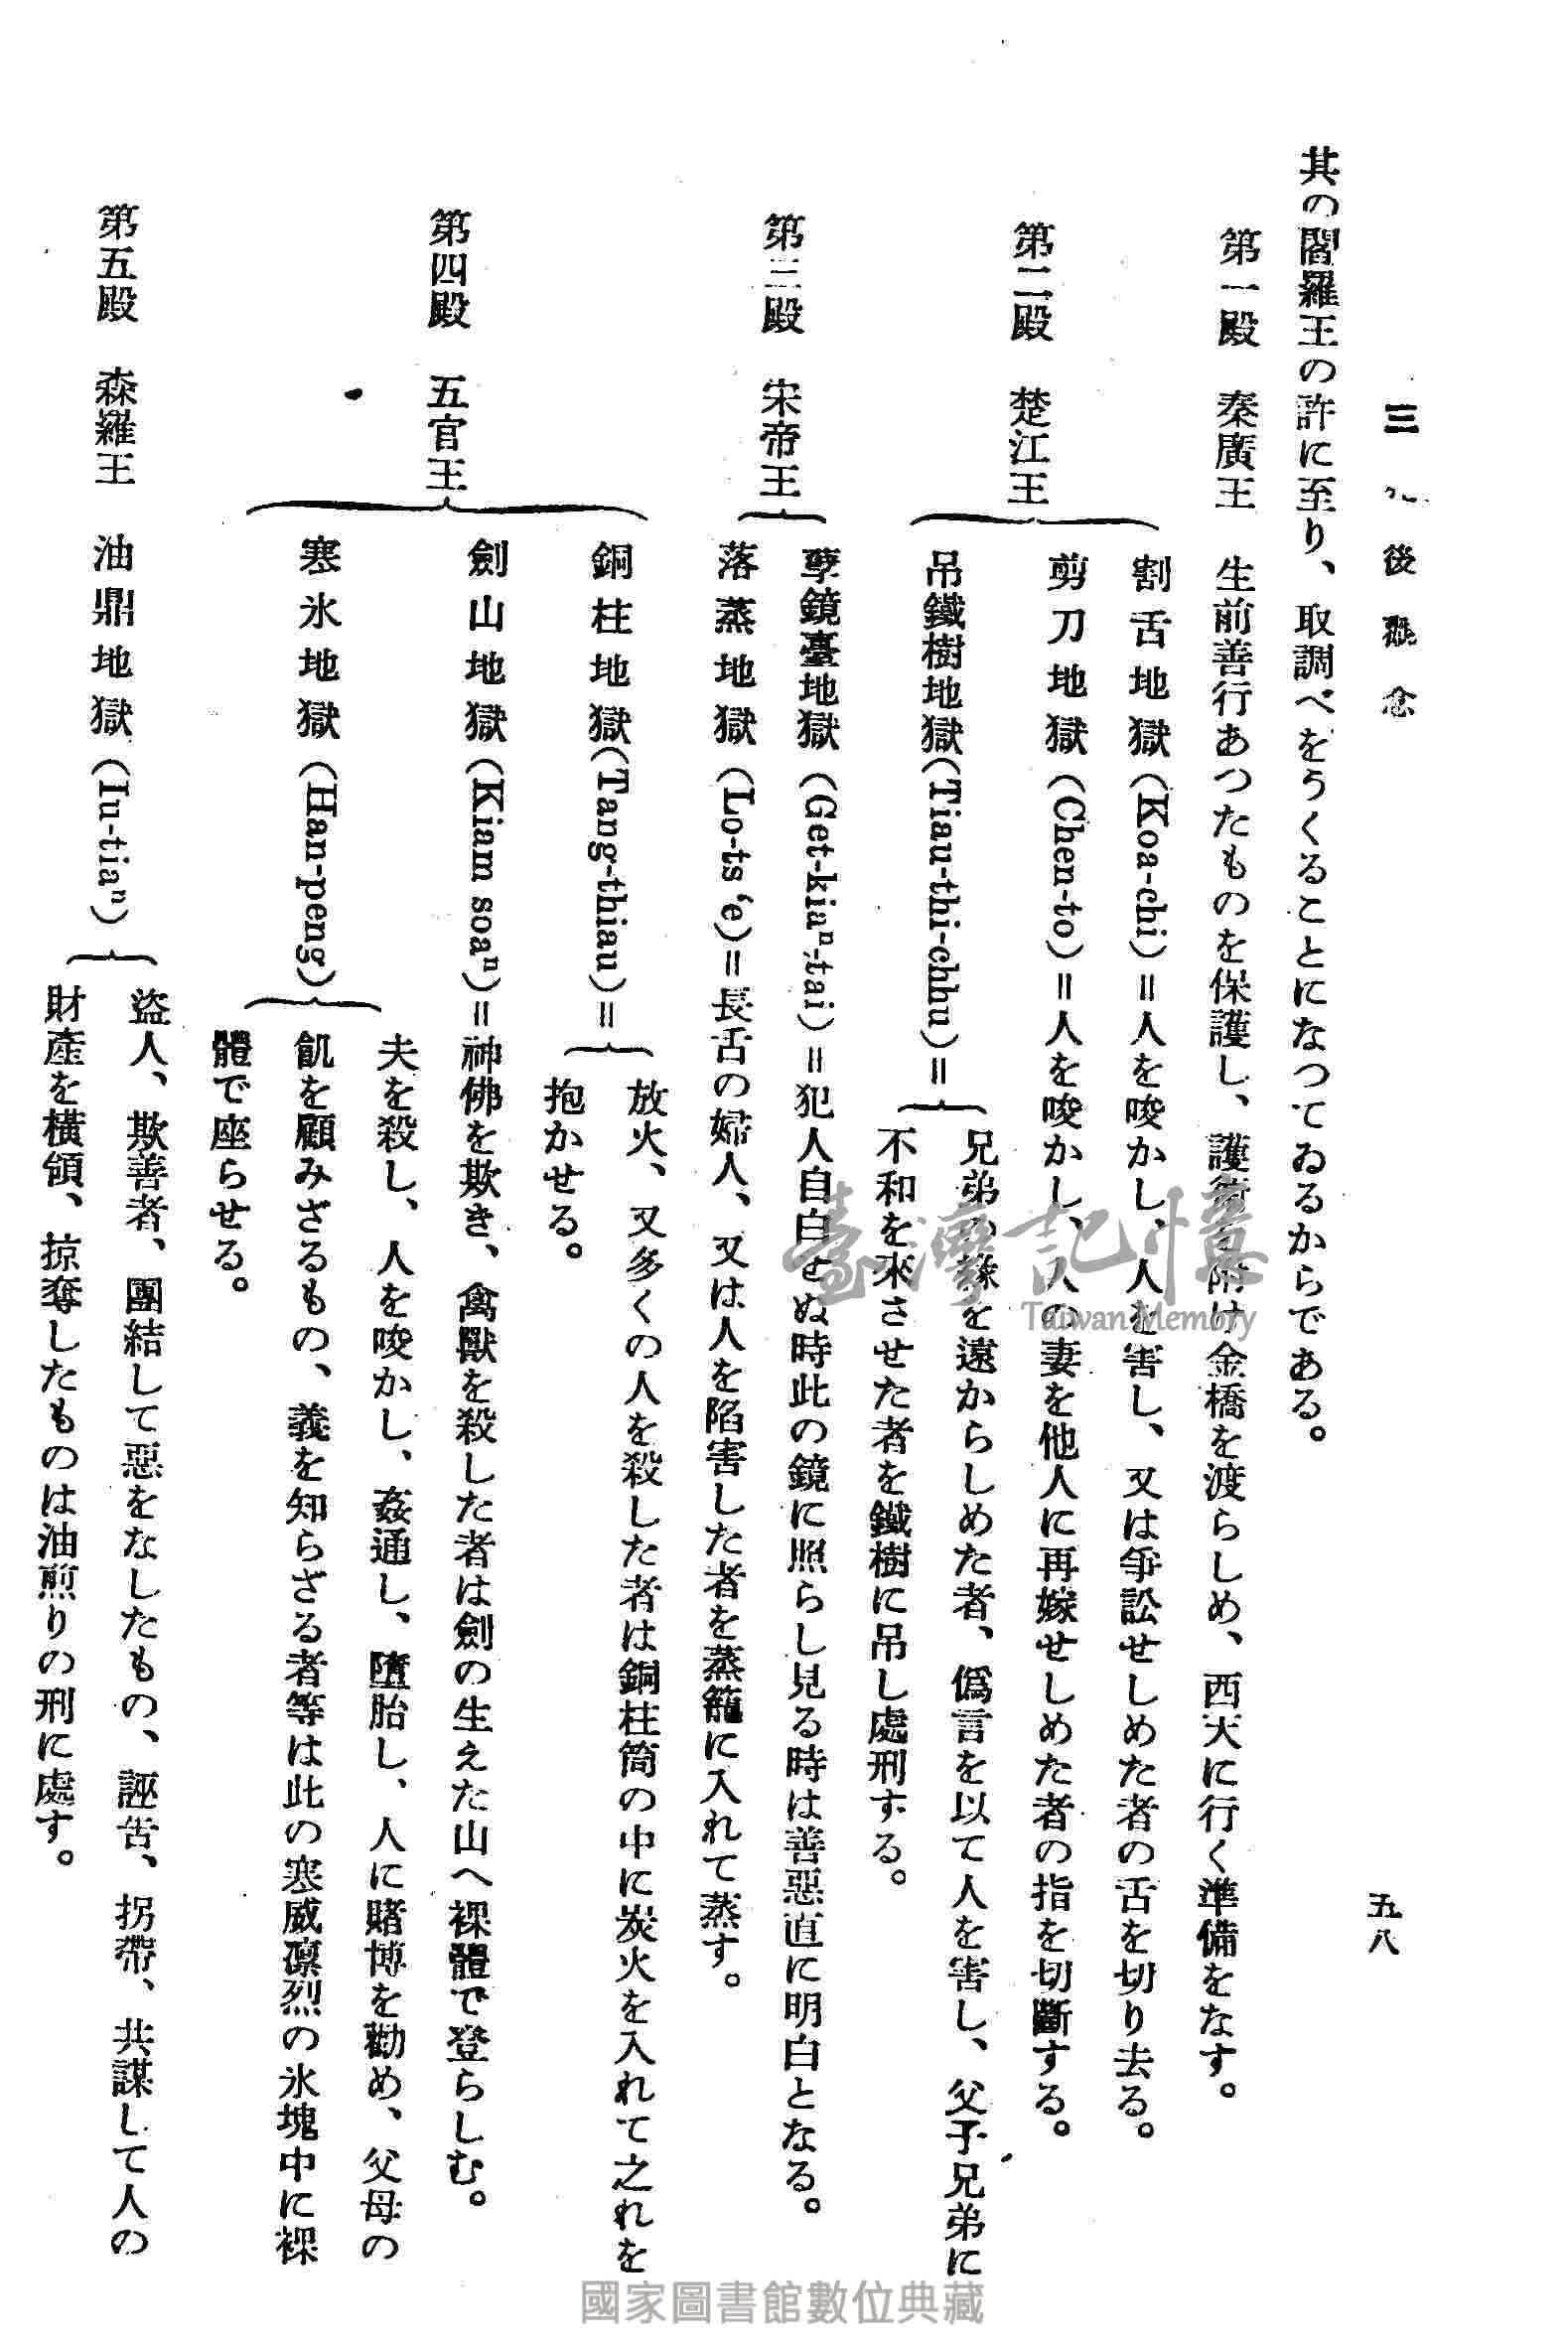 三 後 念
五八
其の閻羅王の許に至り、取調べをうくることになつてゐるからである。
第一殿 秦廣王 生前善行あつたものを保護し、護衞を附け金橋を渡らしめ、西天に行く準備をなす。
第二殿 楚江王
割舌地獄(Koa-chi)=人を唆かし、人を害し、又は爭訟せしめた者の舌を切り去る。
剪刀地獄(Chen-to)=人を唆かし、人の妻を他人に再嫁せしめた者の指を切斷する。
吊鐵樹地獄(Tiau-thi-chhu)=
兄弟の緣を遠からしめた者、僞言を以て人を害し、父子兄弟に
不和を來させた者を鐵樹に吊し處刑する。
第三殿 宋帝王
孽鏡臺地獄(Get-kiaⁿ-tai)=犯人自白せぬ時此の鏡に照らし見る時は善惡直に明白となる。
落蒸地獄(Lo-ts‘e)=長舌の婦人、又は人を陷害した者を蒸籠に入れて蒸す。
第四殿 五官王
銅柱地獄(Tang-thiau)=
放火、又多くの人を殺した者は銅柱筒の中に炭火を入れて之れを
抱かせる。
劍山地獄(Kiam soaⁿ)=神佛を欺き、禽獸を殺した者は劍の生えた山へ裸體で登らしむ。
寒氷地獄(Han-peng)
夫を殺し、人を唆かし、姦通し、墮胎し、人に賭博を勸め、父母の
飢を顧みざるもの、義を知らざる者等は此の寒威凛烈の氷塊中に裸
體で座らせる。
第五殿 森羅王 油鼎地獄(Iu-tiaⁿ)
盜人、欺善者、團結して惡をなしたもの、誣吿、拐帶、共謀して人の
財產を橫領、掠奪したものは油煎りの刑に處す。
臺灣記憶
Taiwan Memory
國家圖書館數位典藏